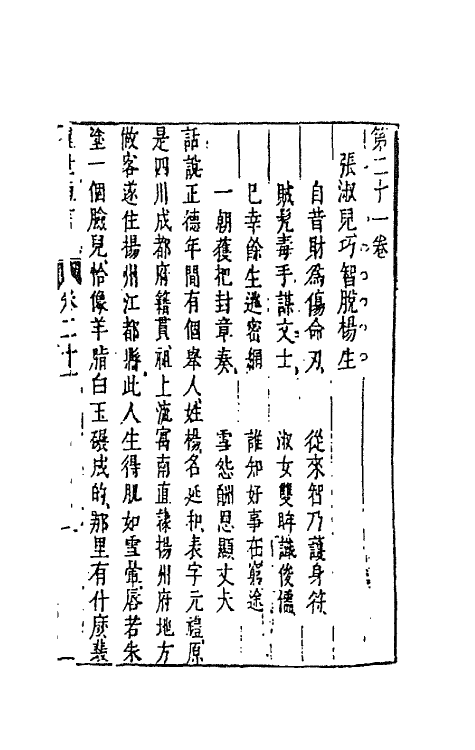 第二十一卷
張淑兒巧智脫楊生
自昔財為傷命刃　從來智乃護身符
賊髡毒手謀文士　淑女雙眸識俊儒
已幸餘生逃密網　誰知好事在窮途
一朝獲把封章奏　雪怨酬恩顯丈夫
話說正德年間有個舉人姓楊名延和表字元禮原
是四川成都府籍貫祖上流寓南直隸揚州府地方
做客遂住揚州江都縣此人生得肌如雪暈唇若朱
塗一個臉兒恰像羊脂白玉碾成的那里有什麼裴
世恆言　卷二十一